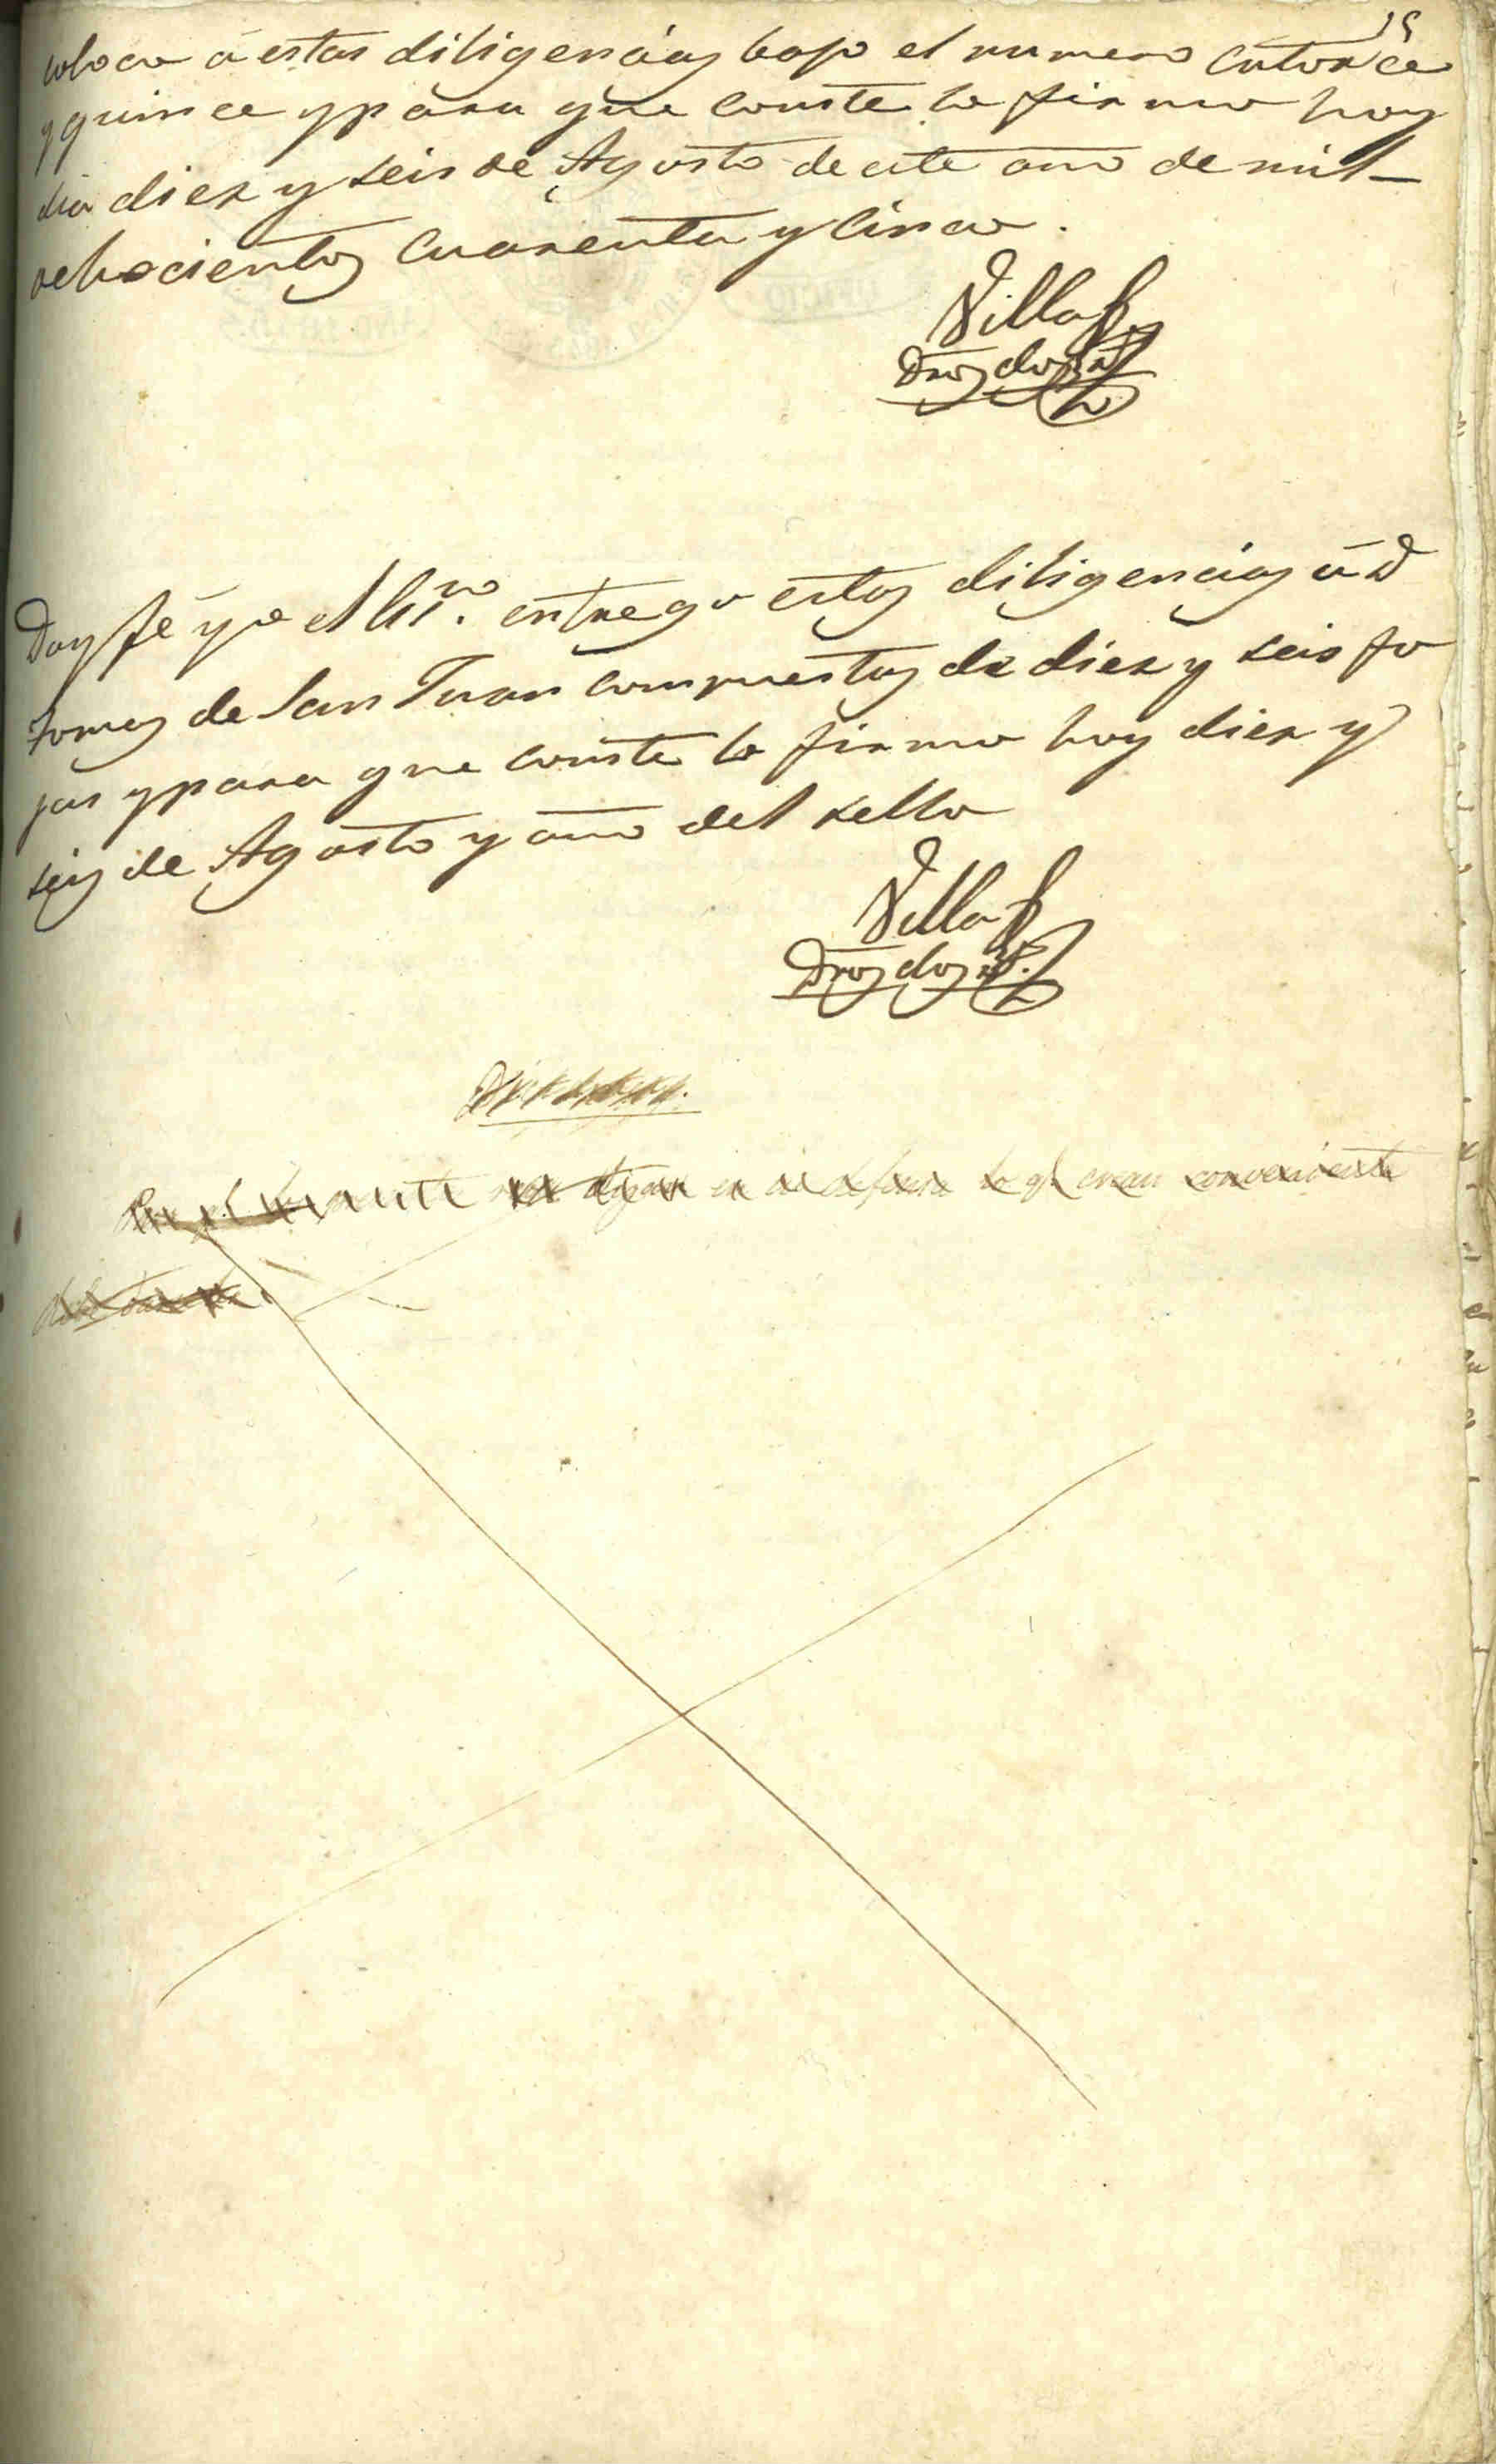 15
coloco á estas diligencias bajo el numero Catorce
y quince y para que conste lo firmo hoy
dia diez y seis de Agosto de este año de mil-
ochocientos Cuarenta y Cinco.
Villaf
Dros dos r.^s
Doy fé yo el Ss.^no entrego estas diligencias á D
Tomas de San Juan compuestas de diez y seis fo
jas y para que conste lo firmo hoy diez y
seis de Agosto y año del sello
Villaf
Dros dos r.^s
digan en su defensa lo q.^e crean conveniente